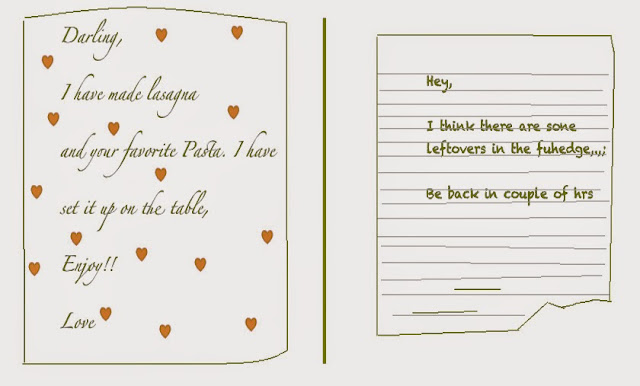 Darling,
I have made lasagna
and your favorite Pasta. I have
set it up on the table,
Enjoy!!
Love
Hey,
I think there are sone
leftovers in the fuhedge,,,;
Be back in couple of hrs